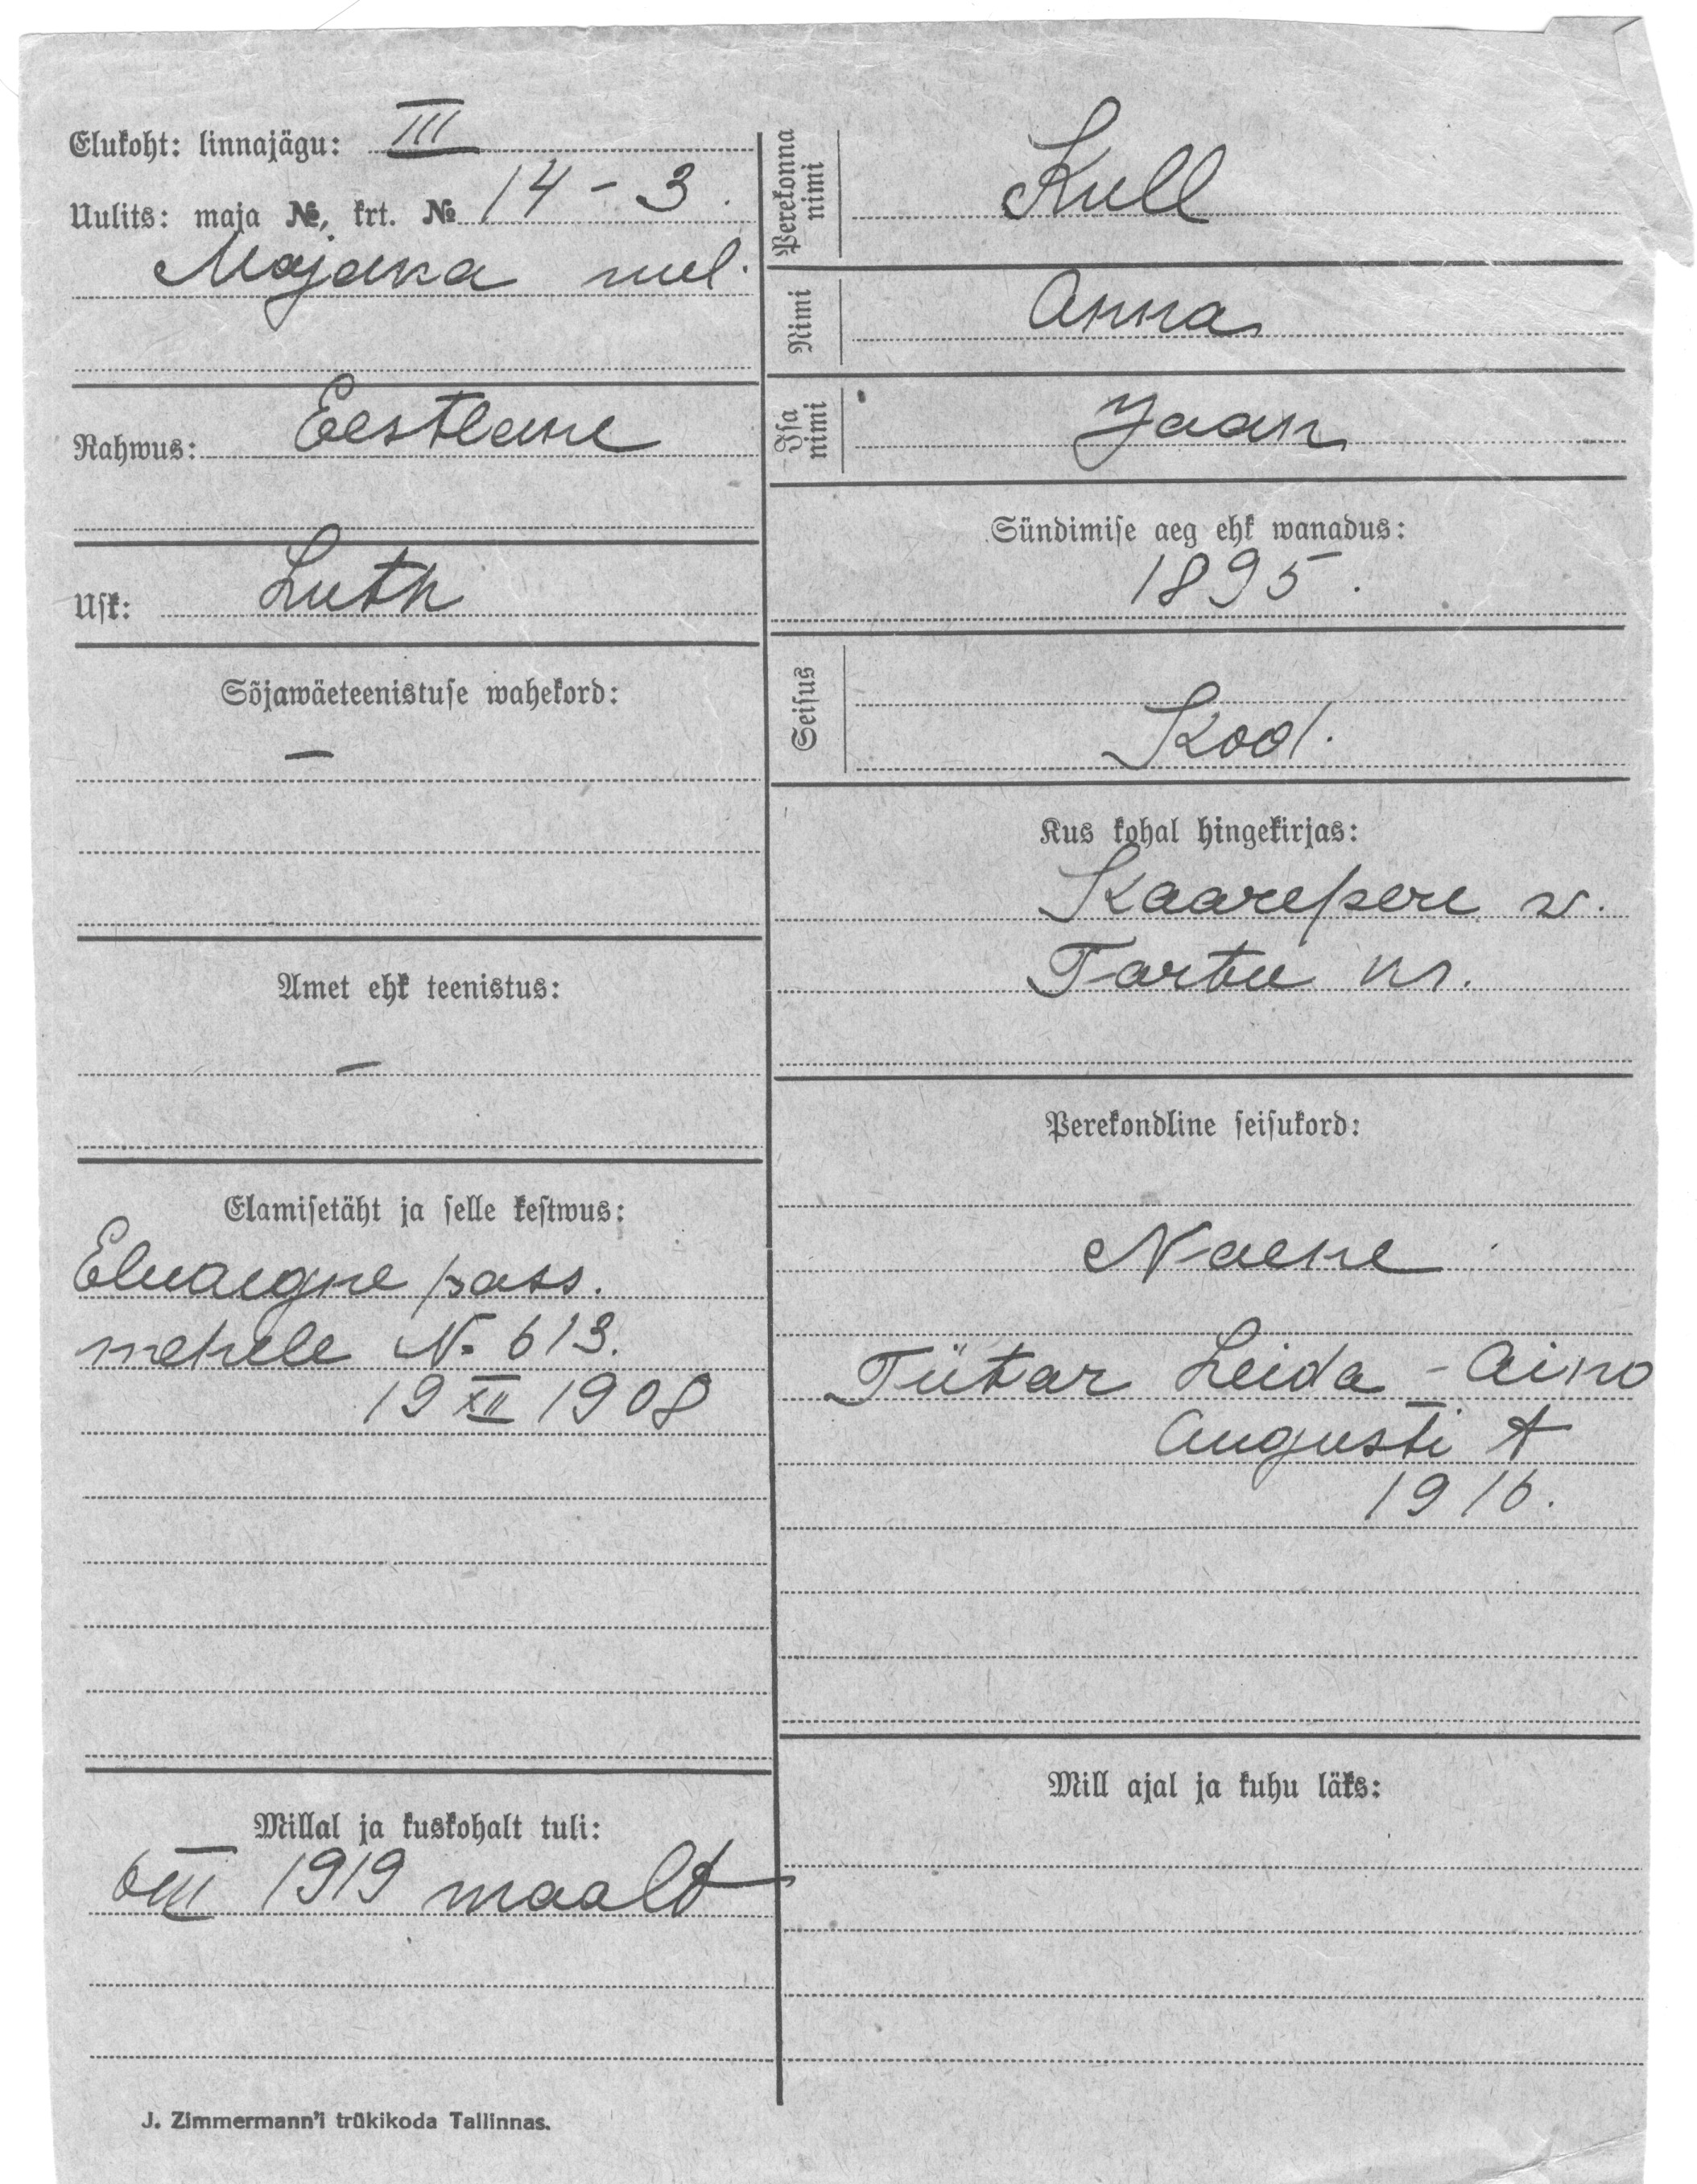 Elukoht: linnajägu: III
Uulits: maja №, krt. № 14 - 3.
Majaka uul.
Rahwus: Eestlane
Usk: Luth
Sõjawäeteenistuse wahekord:
—
Amet ehk teenistus:
—
Elamisetäht ja selle kestwus:
Eluaegne pass.
mehele N. 613.
19 XII 1908
Millal ja kuskohalt tuli:
6 III 1919 maalt
J. Zimmermann'i trükikoda Tallinnas.
Perekonna nimi Kull
Nimi Anna
Isa nimi Jaan
Sündimise aeg ehk wanadus:
1895.
Seisus
Kod.
Kus kohal hingekirjas:
Kaarepere w.
Tartu kr.
Perekondline seisukord:
Naene
Tütar Leida - Aino
Augusti t
1916.
Mill ajal ja kuhu läks: